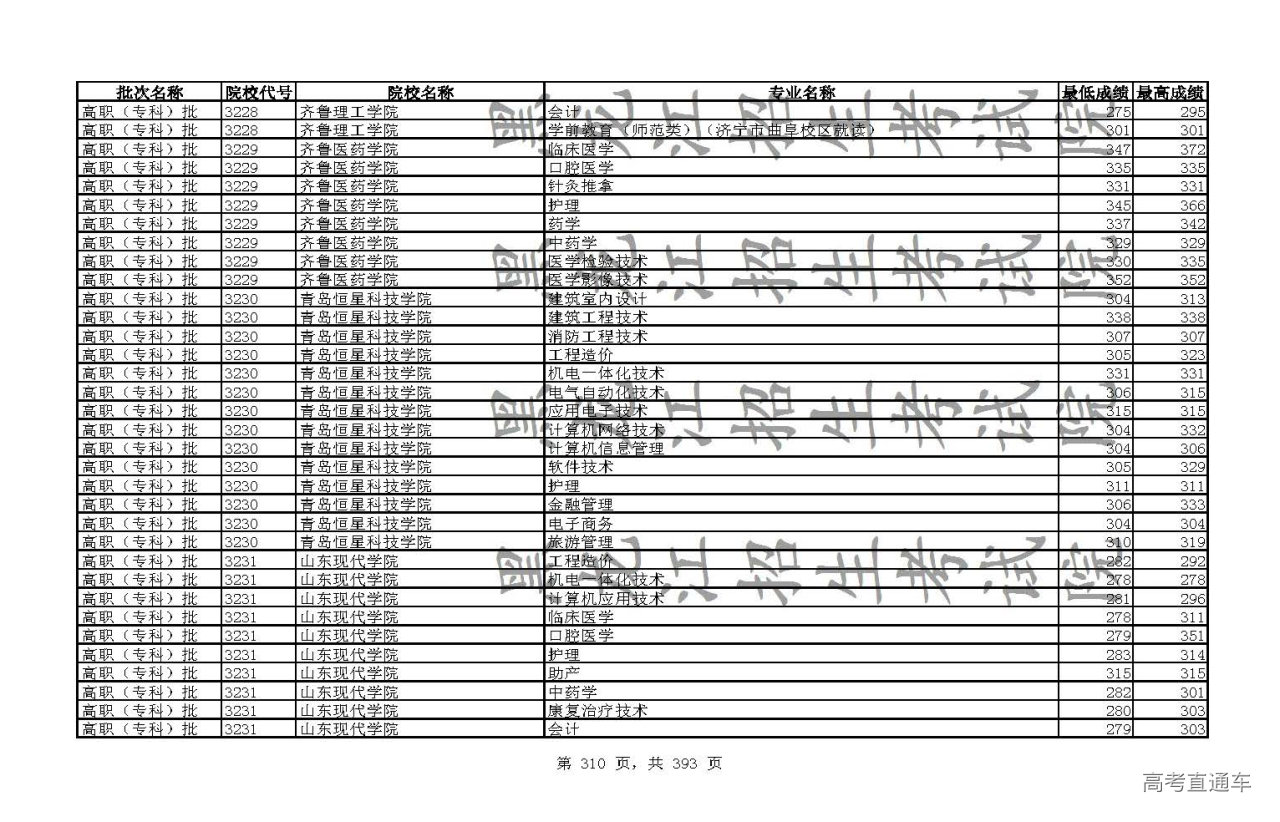 批次名称 院校代号 院校名称 专业名称 最低成绩 最高成绩
高职（专科）批 3228 齐鲁理工学院 会计 275 295
高职（专科）批 3228 齐鲁理工学院 学前教育（师范类）（济宁市曲阜校区就读） 301 301
高职（专科）批 3229 齐鲁医药学院 临床医学 347 372
高职（专科）批 3229 齐鲁医药学院 口腔医学 335 335
高职（专科）批 3229 齐鲁医药学院 针灸推拿 331 331
高职（专科）批 3229 齐鲁医药学院 护理 345 366
高职（专科）批 3229 齐鲁医药学院 药学 337 342
高职（专科）批 3229 齐鲁医药学院 中药学 329 329
高职（专科）批 3229 齐鲁医药学院 医学检验技术 330 335
高职（专科）批 3229 齐鲁医药学院 医学影像技术 352 352
高职（专科）批 3230 青岛恒星科技学院 建筑室内设计 304 313
高职（专科）批 3230 青岛恒星科技学院 建筑工程技术 338 338
高职（专科）批 3230 青岛恒星科技学院 消防工程技术 307 307
高职（专科）批 3230 青岛恒星科技学院 工程造价 305 323
高职（专科）批 3230 青岛恒星科技学院 机电一体化技术 331 331
高职（专科）批 3230 青岛恒星科技学院 电气自动化技术 306 315
高职（专科）批 3230 青岛恒星科技学院 应用电子技术 315 315
高职（专科）批 3230 青岛恒星科技学院 计算机网络技术 304 332
高职（专科）批 3230 青岛恒星科技学院 计算机信息管理 304 306
高职（专科）批 3230 青岛恒星科技学院 软件技术 305 329
高职（专科）批 3230 青岛恒星科技学院 护理 311 311
高职（专科）批 3230 青岛恒星科技学院 金融管理 306 333
高职（专科）批 3230 青岛恒星科技学院 电子商务 304 304
高职（专科）批 3230 青岛恒星科技学院 旅游管理 310 319
高职（专科）批 3231 山东现代学院 工程造价 282 292
高职（专科）批 3231 山东现代学院 机电一体化技术 278 278
高职（专科）批 3231 山东现代学院 计算机应用技术 281 296
高职（专科）批 3231 山东现代学院 临床医学 278 311
高职（专科）批 3231 山东现代学院 口腔医学 279 351
高职（专科）批 3231 山东现代学院 护理 283 314
高职（专科）批 3231 山东现代学院 助产 315 315
高职（专科）批 3231 山东现代学院 中药学 282 301
高职（专科）批 3231 山东现代学院 康复治疗技术 280 303
高职（专科）批 3231 山东现代学院 会计 279 303
黑龙江招生考试院
黑龙江招生考试院
黑龙江招生考试院
黑龙江招生考试院
第 310 页，共 393 页
高考直通车